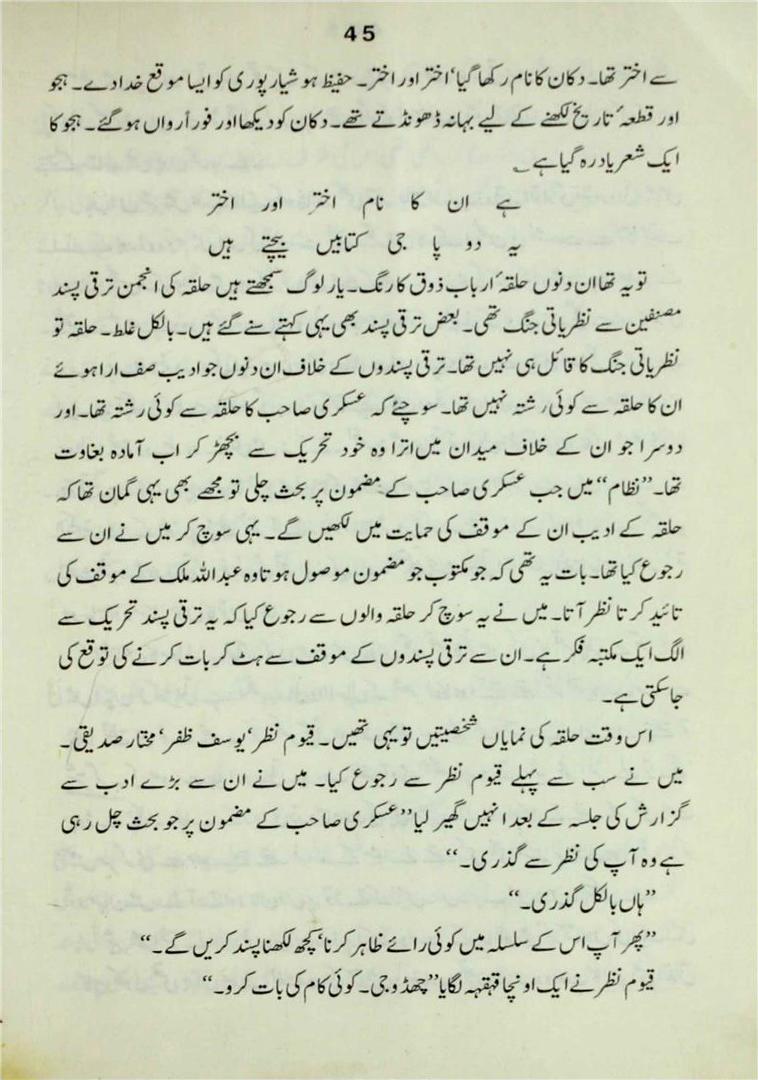 45
سے اختر تھا۔ دکان کا نام رکھا گیا‘ اختر اور اختر۔ حفیظ ہوشیارپوری کو ایسا موقع خدا دے۔ ہجو
اور قطعہٴ تاریخ لکھنے کے لیے بہانہ ڈھونڈتے تھے۔ دکان کو دیکھا اور فوراً رواں ہو گئے۔ ہجو کا
ایک شعر یاد رہ گیا ہے ؎
ہے ان کا نام اختر اور اختر
یہ دو پا جی کتابیں بیچتے ہیں
تو یہ تھا ان دنوں حلقہٴ ارباب ذوق کا رنگ۔ یار لوگ سمجھتے ہیں حلقہ کی انجمن ترقی پسند
مصنفین سے نظریاتی جنگ تھی۔ بعض ترقی پسند بھی یہی کہتے سنے گئے ہیں۔ بالکل غلط۔ حلقہ تو
نظریاتی جنگ کا قائل ہی نہیں تھا۔ ترقی پسندوں کے خلاف ان دنوں جو ادیب صف ارا ہوئے
ان کا حلقہ سے کوئی رشتہ نہیں تھا۔ سوچئے کہ عسکری صاحب کا حلقہ سے کوئی رشتہ تھا۔ اور
دوسرا جو ان کے خلاف میدان میں اترا وہ خود تحریک سے بچھڑ کر اب آمادہ بغاوت
تھا۔ ”نظام“ میں جب عسکری صاحب کے مضمون پر بحث چلی تو مجھے بھی یہی گمان تھا کہ
حلقہ کے ادیب ان کے موقف کی حمایت میں لکھیں گے۔ یہی سوچ کر میں نے ان سے
رجوع کیا تھا۔ بات یہ تھی کہ جو مکتوب جو مضمون موصول ہوتا وہ عبداللہ ملک کے موقف کی
تائید کرتا نظر آتا۔ میں نے یہ سوچ کر حلقہ والوں سے رجوع کیا کہ یہ ترقی پسند تحریک سے
الگ ایک مکتبہ فکر ہے۔ ان سے ترقی پسندوں کے موقف سے ہٹ کر بات کرنے کی توقع کی
جا سکتی ہے۔
اس وقت حلقہ کی نمایاں شخصیتیں تو یہی تھیں۔ قیوم نظر‘ یوسف ظفر‘ مختار صدیقی۔
میں نے سب سے پہلے قیوم نظر سے رجوع کیا۔ میں نے ان سے بڑے ادب سے
گزارش کی جلسہ کے بعد انہیں گھیر لیا ”عسکری صاحب کے مضمون پر جو بحث چل رہی
ہے وہ آپ کی نظر سے گذری۔“
”ہاں بالکل گذری۔“
”پھر آپ اس کے سلسلہ میں کوئی رائے ظاہر کرنا‘ کچھ لکھنا پسند کریں گے۔“
قیوم نظر نے ایک اونچا قہقہہ لگایا ”چھڈو جی۔ کوئی کام کی بات کرو۔“